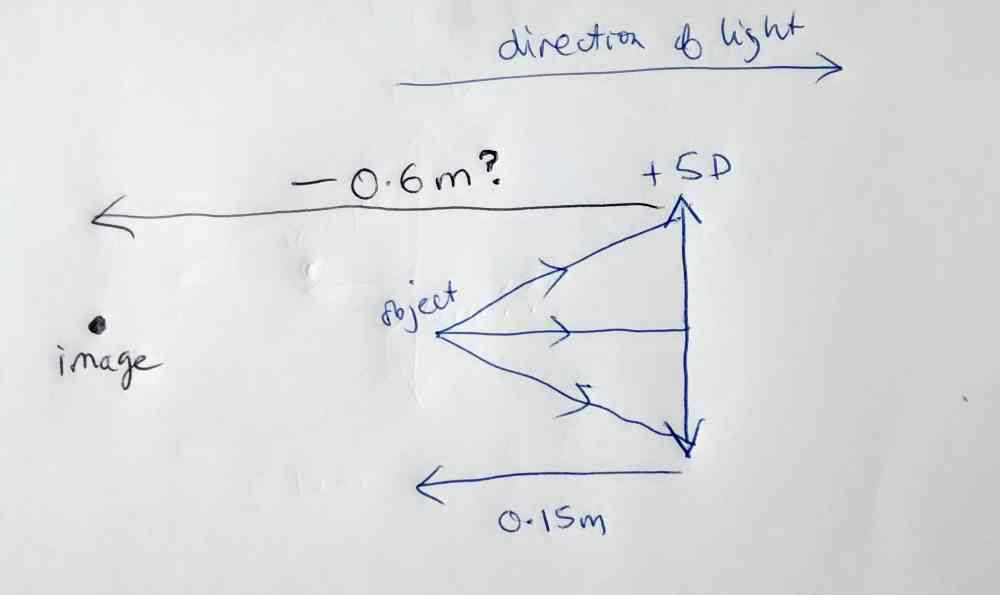 direction of light
— 0.6m?
+5D
object
image
0.15m